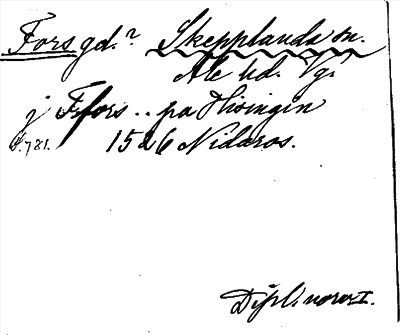 Fors gd.? Skepplanda sn.
Ale hd. Vg.
j Ffors .. pa Hisingin
s. 781. 1526 Nidaros.
Dipl. norv. I.